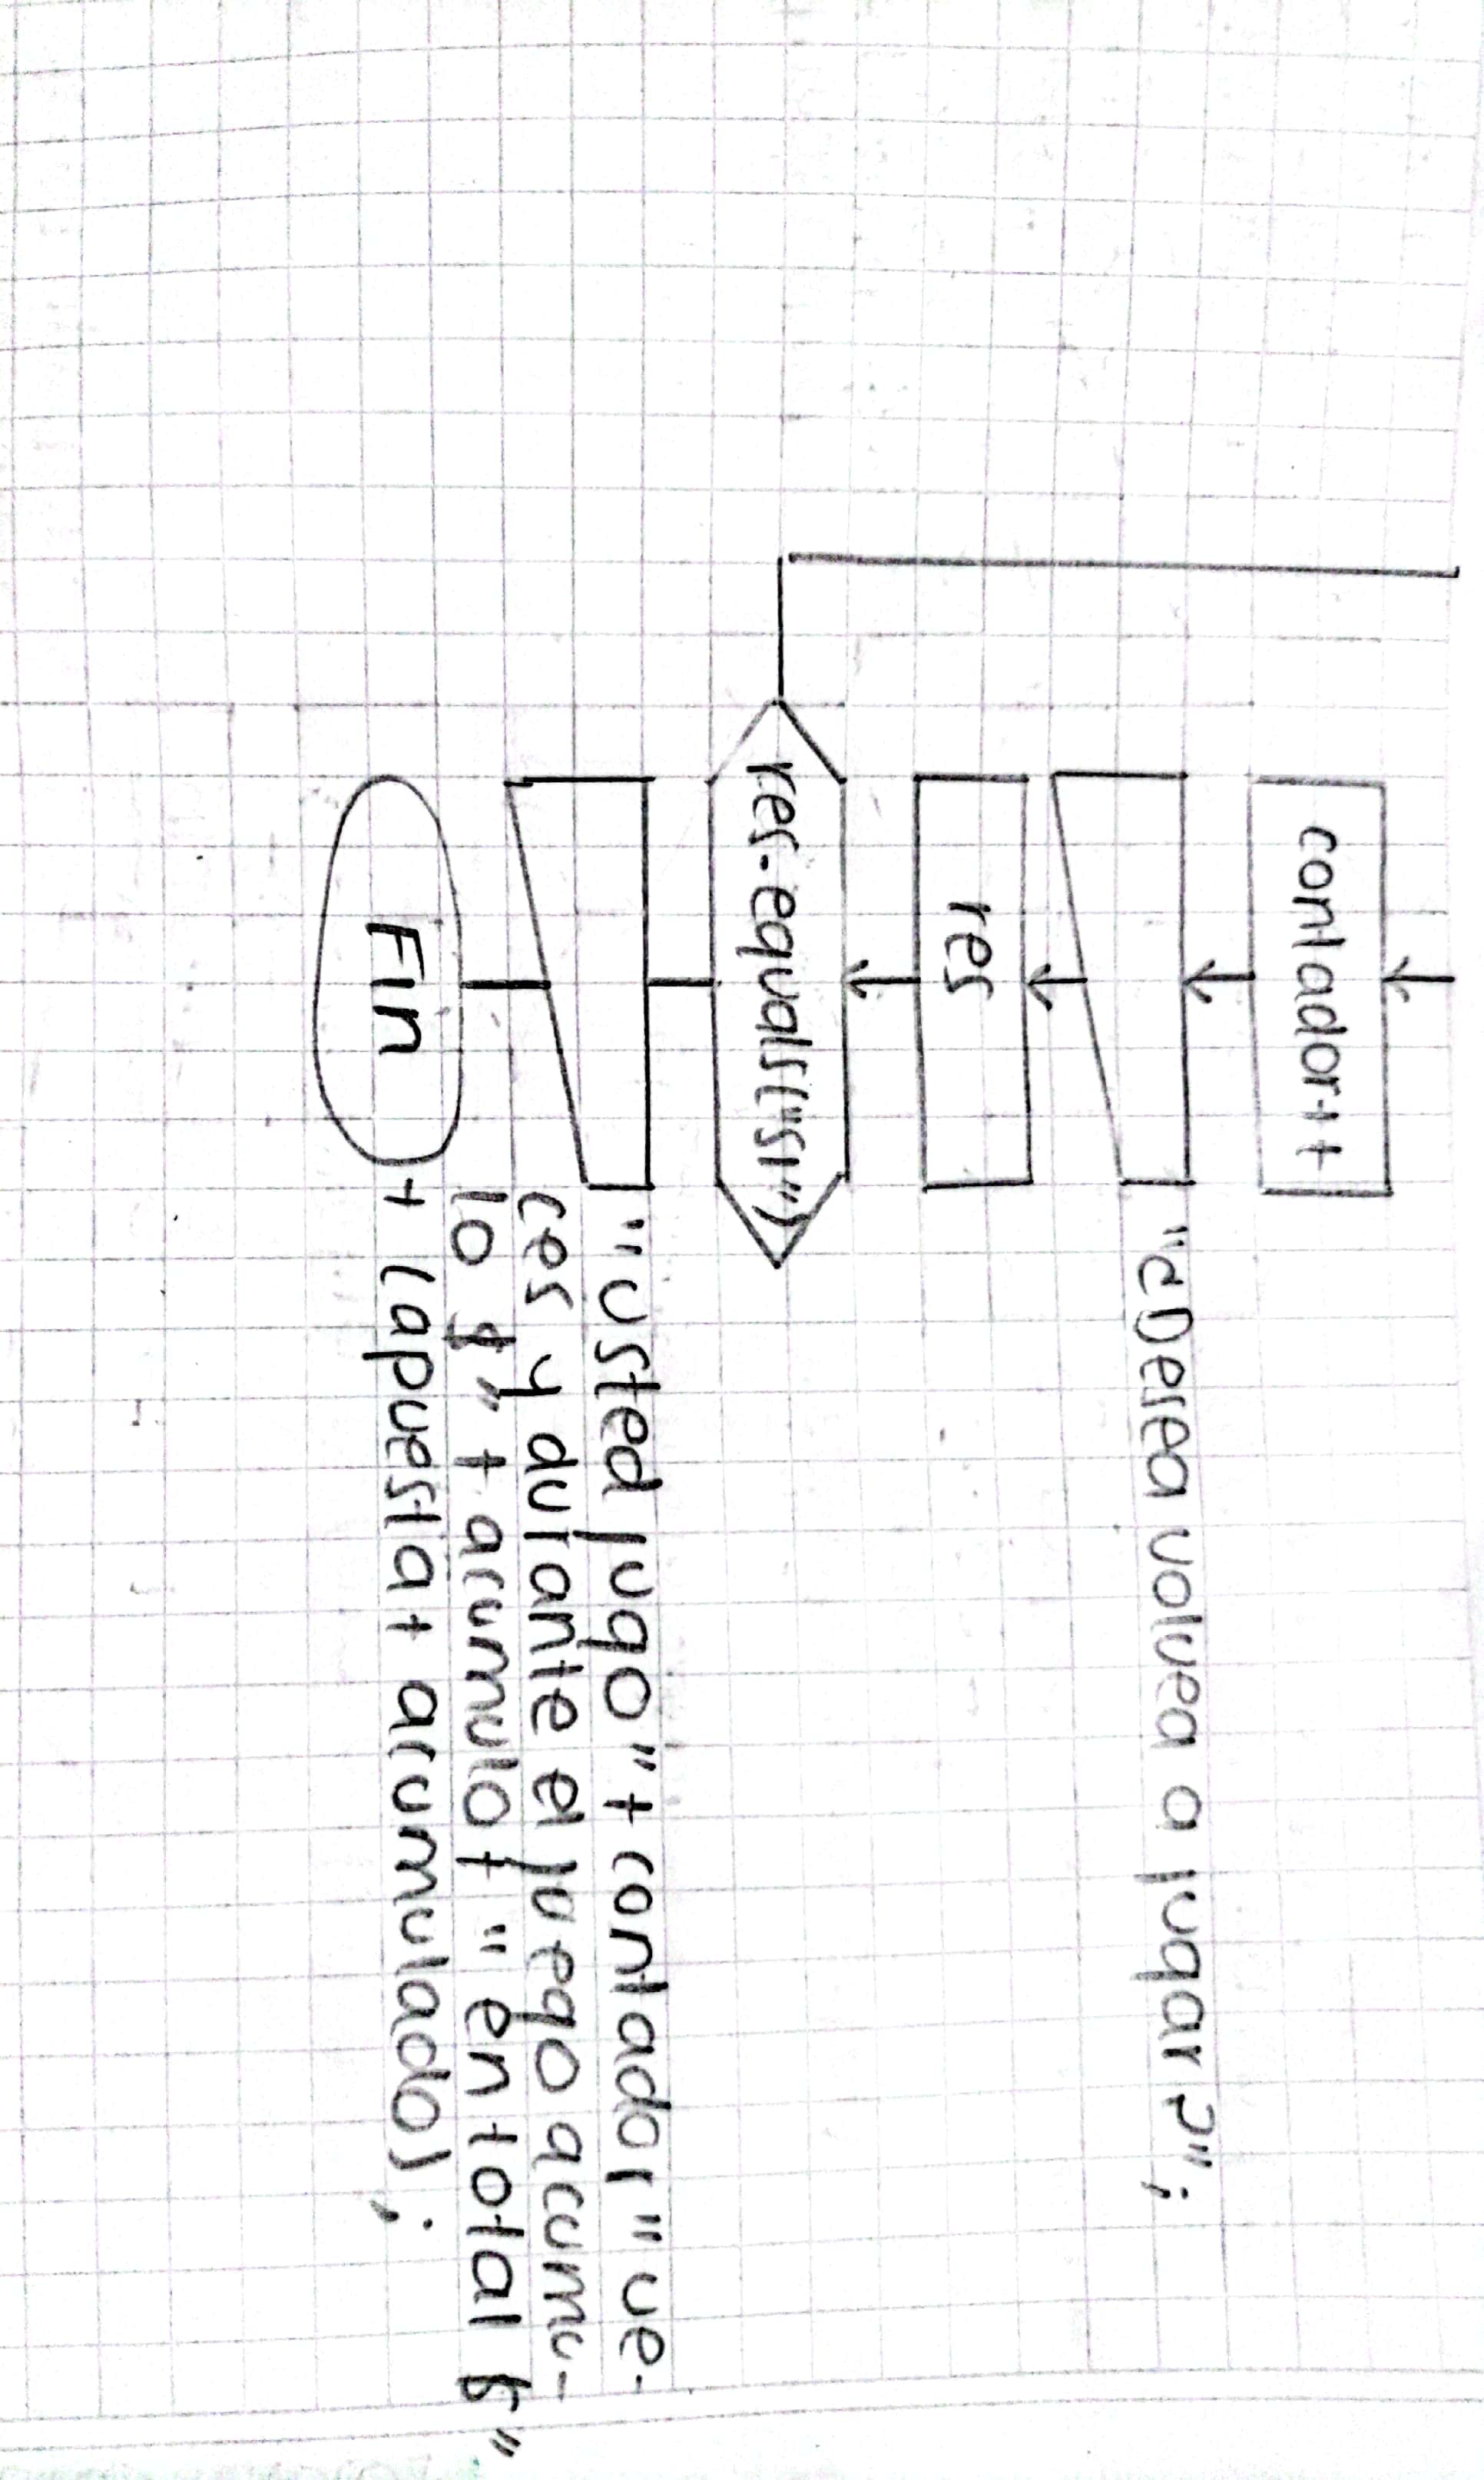 contador++
"¿Desea volvea a jugar?";
res
res.equals("si")
"Usted jugo" + contador "ve-
ces y durante el juego acumu-
lo $" + acumulo + " en total $"
+ (apuesta + acumulado);
Fin